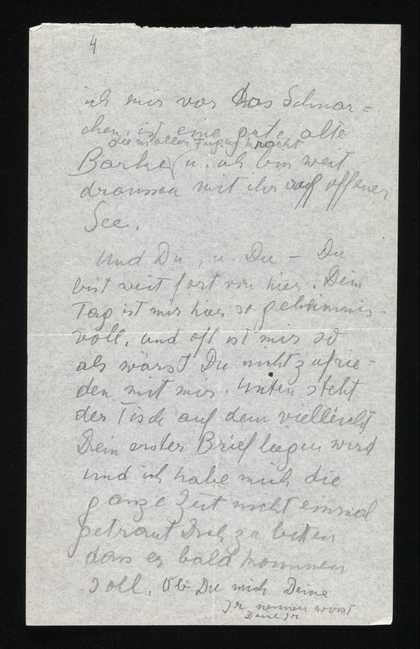 4
ich mir vor das Schnar=
chen, ist eine gute alte
die in allen Fugen kracht
Barke u. ich bin weit
draussen mit ihr auf offener
See.
Und Du, u. Du – Du
bist weit fort von hier. Dein
Tag ist mir hier so geheimnis-
voll, und oft ist mir so
als wärst Du nicht zufrie-
den mit mir. Unten steht
der Tisch auf dem vielleicht
Dein erster Brief liegen wird
und ich habe mich die
ganze Zeit nicht einmal
getraut Dich zu bitten
dass er bald kommen
soll. Ob Du mich Deine
nennen wirst
Deine